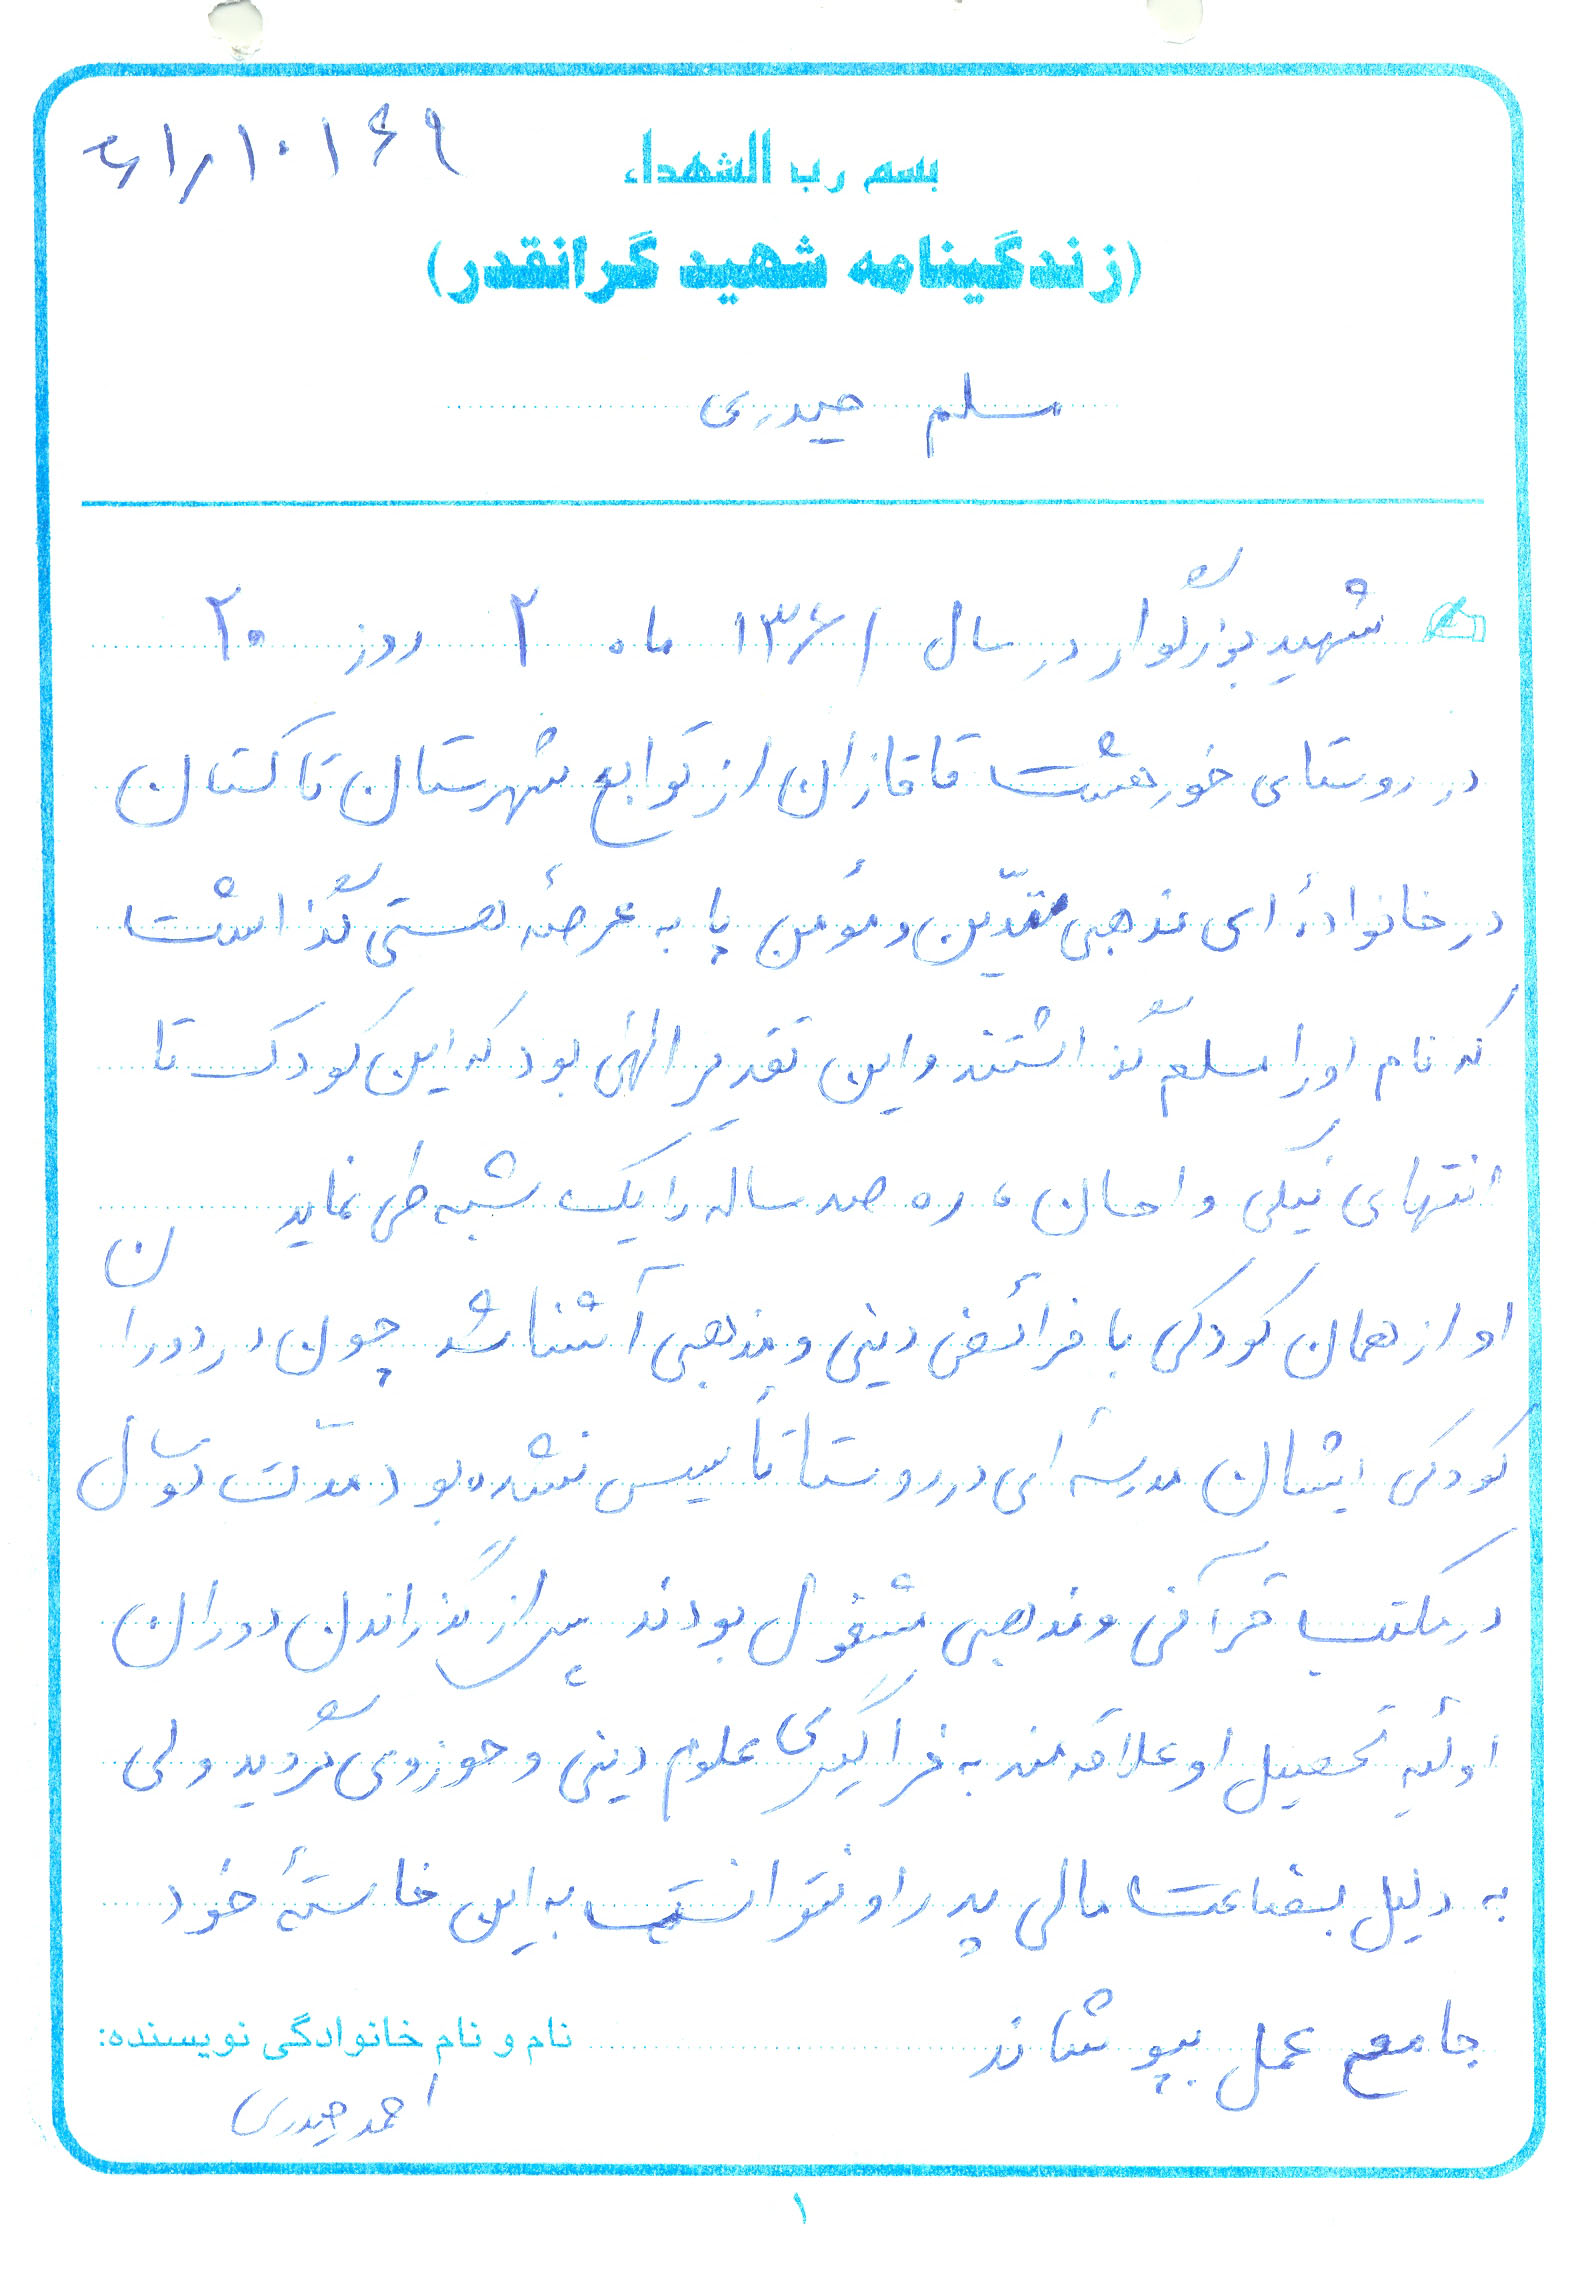 ۶۱/۱۰۱۶۹
بسم رب الشهداء
(زندگینامه شهید گرانقدر)
مسلم حیدری
شهید بزرگوار در سال ۱۳۴۱ ماه ۲ روز ۲۰
در روستای خورهشت قاقازان از توابع شهرستان تاکستان
در خانوادهٔ ای مذهبی متدّین و مؤمن پا به عرصهٔ هستی گذاشت
که نام او را مسلم گذاشتند و این تقدیر الهی بود که این کودک تا
انتهای نیکی و احسان ، ره صد ساله را یک شبه طی نماید
او از همان کودکی با فرائض دینی و مذهبی آشنا شد چون در دوران
کودکی ایشان مدرسهٔ ای در روستا تأسیس نشده بود مدّت دو سال
در مکتب قرآنی و مذهبی مشغول بودند پس از گذراندن دوران
اولیهٔ تحصیل او علاقه مند به فراگیری علوم دینی و حوزوی گردید ولی
به دلیل بضاعت مالی پدر او نتوانست به این خاستهٔ خود
جامع عمل بپوشاند
نام و نام خانوادگی نویسنده:
احمد حیدری
۱